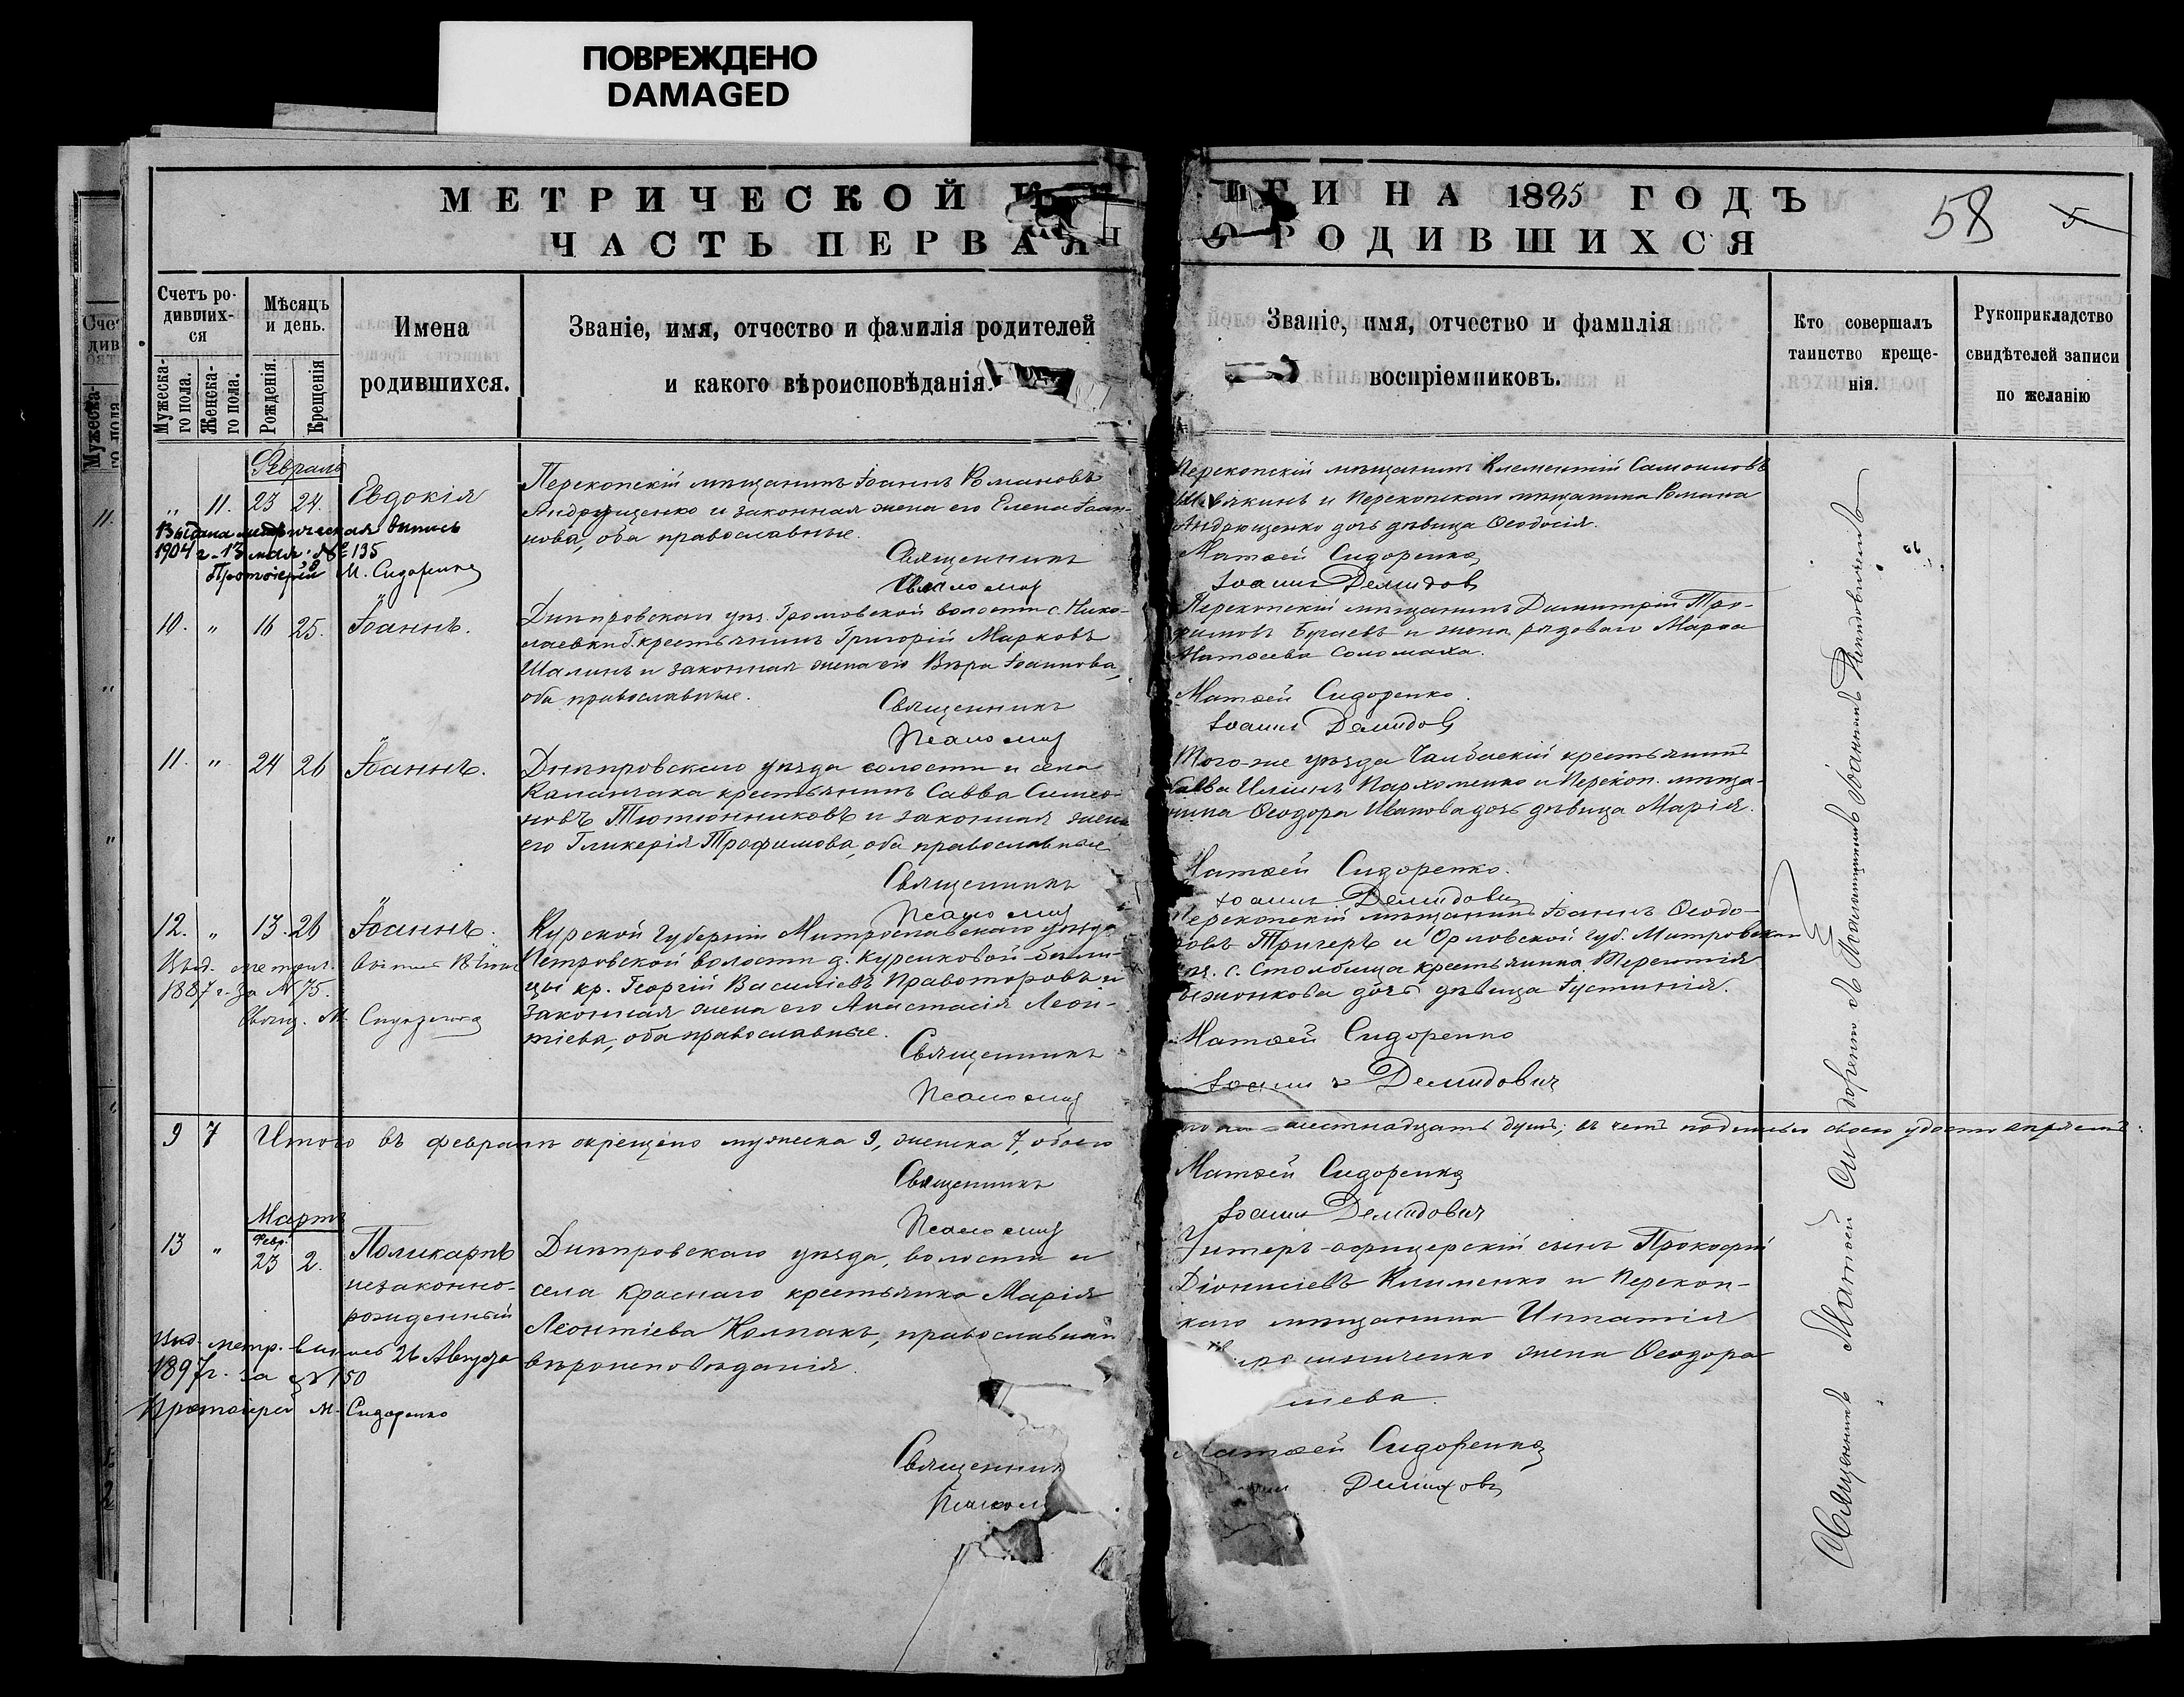 ПОВРЕЖДЕНО
DAMAGED
МЕТРИЧЕСКОЙ
ГИ НА 1885 ГОДЪ
58
5
ЧАСТЬ ПЕРВАЯ
О РОДИВШИХСЯ
Счетъ ро-
дивших-
ся
Мужеска-
го пола.
Женска-
го пола.
Мѣсяцъ
и день.
Рожденія.
Крещенія
Имена
родившихся.
Званіе, имя, отчество и фамилія родителей
и какого вѣроисповѣданія.
Званіе, имя, отчество и фамилія
воспріемниковъ.
Кто совершалъ
таинство креще-
нія.
Рукоприкладство
свидѣтелей записи
по желанію
Февраль
„ 11. 23 24. Евдокія
Перекопскій мѣщанинъ Іоаннъ Романовъ
Андрущенко и законная жена его Елена Іоан-
нова, оба православные.
Священникъ
Псаломщ
Выдана метрическая выпись
1904 г. 13 мая № 135
Протоіерей М. Сидоренко
Перекопскій мѣщанинъ Климентій Самоиловъ
и Перекопскаго мѣщанина Романа
Андрющенко дочь дѣвица Ѳеодосія.
Матѳей Сидоренко
Іоаннъ Демидов
10. „ 16 25. Іоаннъ.
Днѣпровскаго уѣз. Громовской волости с. Нико-
лаевки б. крестьянинъ Григорій Марковъ
Шалинъ и законная жена его Вѣра Іоаннова,
оба православные.
Священникъ
Псаломщ
Перекопскій мѣщанинъ Димитрій Тро-
фимовъ Бугаевъ и жена рядоваго Марѳа
Матѳеева Соломаха.
Матѳей Сидоренко.
Іоаннъ Демидов
11. „ 24 26 Іоаннъ.
Днѣпровскаго уѣзда волости и села
Каланчака крестьянинъ Савва Симео-
новъ Тютюнниковъ и законная жена
его Гликерія Трофимова, оба православные
Священникъ
Псаломщ
Того-же уѣзда Чалбаскій крестьянинъ
Савва Ильинъ Пархоменко и Перекоп. мѣща-
нина Ѳеодора Иванова дочь дѣвица Марія.
Матѳей Сидоренко.
Іоаннъ Демидович
12. „ 13. 26 Іоаннъ.
Курской Губерніи Митрославскаго уѣзда
Петровской волости д.
кр. Георгій Василіевъ Правоторовъ и
законная жена его Анастасія Леон-
тіева, оба православные.
Священникъ
Псаломщ
Выд. метрич. выпись
1887 г. за № 75.
Свящ. М. Сидоренко
Перекопскій мѣщанинъ Іоаннъ Ѳеодо-
ровъ Тригеръ и Орловской Губ. Митровскаго
с. Столбища крестьянина Терентія
дочь дѣвица Густинія.
Матѳей Сидоренко
Іоаннъ Демидович
9 7 Итого въ февралѣ окрещено мужеска 9, женска 7, обоего
пола шестнадцать душъ; въ чемъ подписью своею удостовѣряемъ:
Священникъ
Псаломщ
Матѳей Сидоренко
Іоаннъ Демидович
Мартъ
Февр.
13 „ 23 2. Поликарпъ
незаконно-
рожденный
Днѣпровскаго уѣзда, волости и
села Краснаго крестьянка Марія
Леонтіева Колпакъ, православнаго
вѣроисповѣданія.
Священник
Псалом
Выд. метр. выпись 26 Августа
1897 г. за № 150
Протоіерей М. Сидоренко
Унтеръ-офицерскій сынъ Прокофій
Діонисіевъ Клименко и Перекоп-
скаго мѣщанина Игнатія
жена Ѳеодора
Матѳей Сидоренко
Демидов
Священникъ Матѳей Сидоренко съ Псаломщикомъ Іоанномъ Демидовичемъ